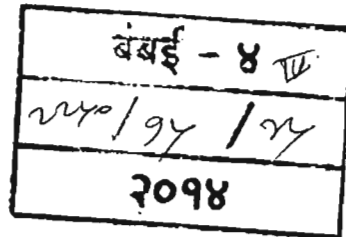 बंबई - ४ III
२२५०/१५ /२५
२०१४